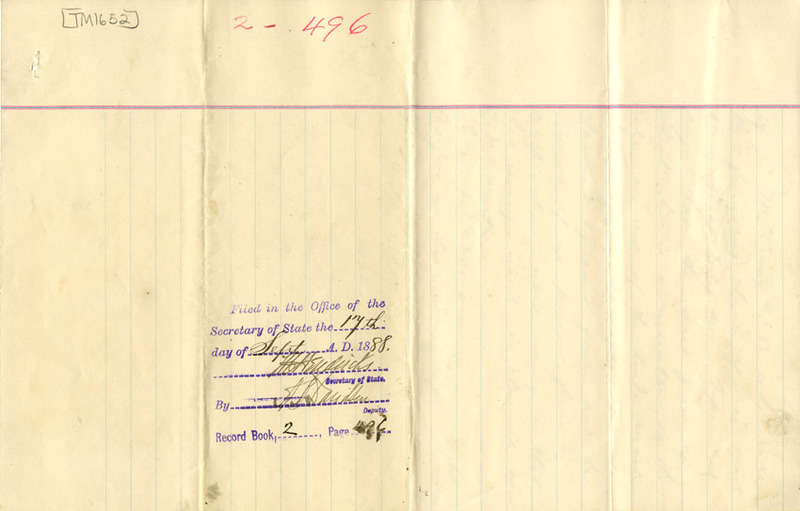 [TM1652]
2 - 496
Filed in the Office of the
Secretary of State the 17th
day of Sept A. D. 1888.
Secretary of State.
By
Deputy.
Record Book, 2, Page 496